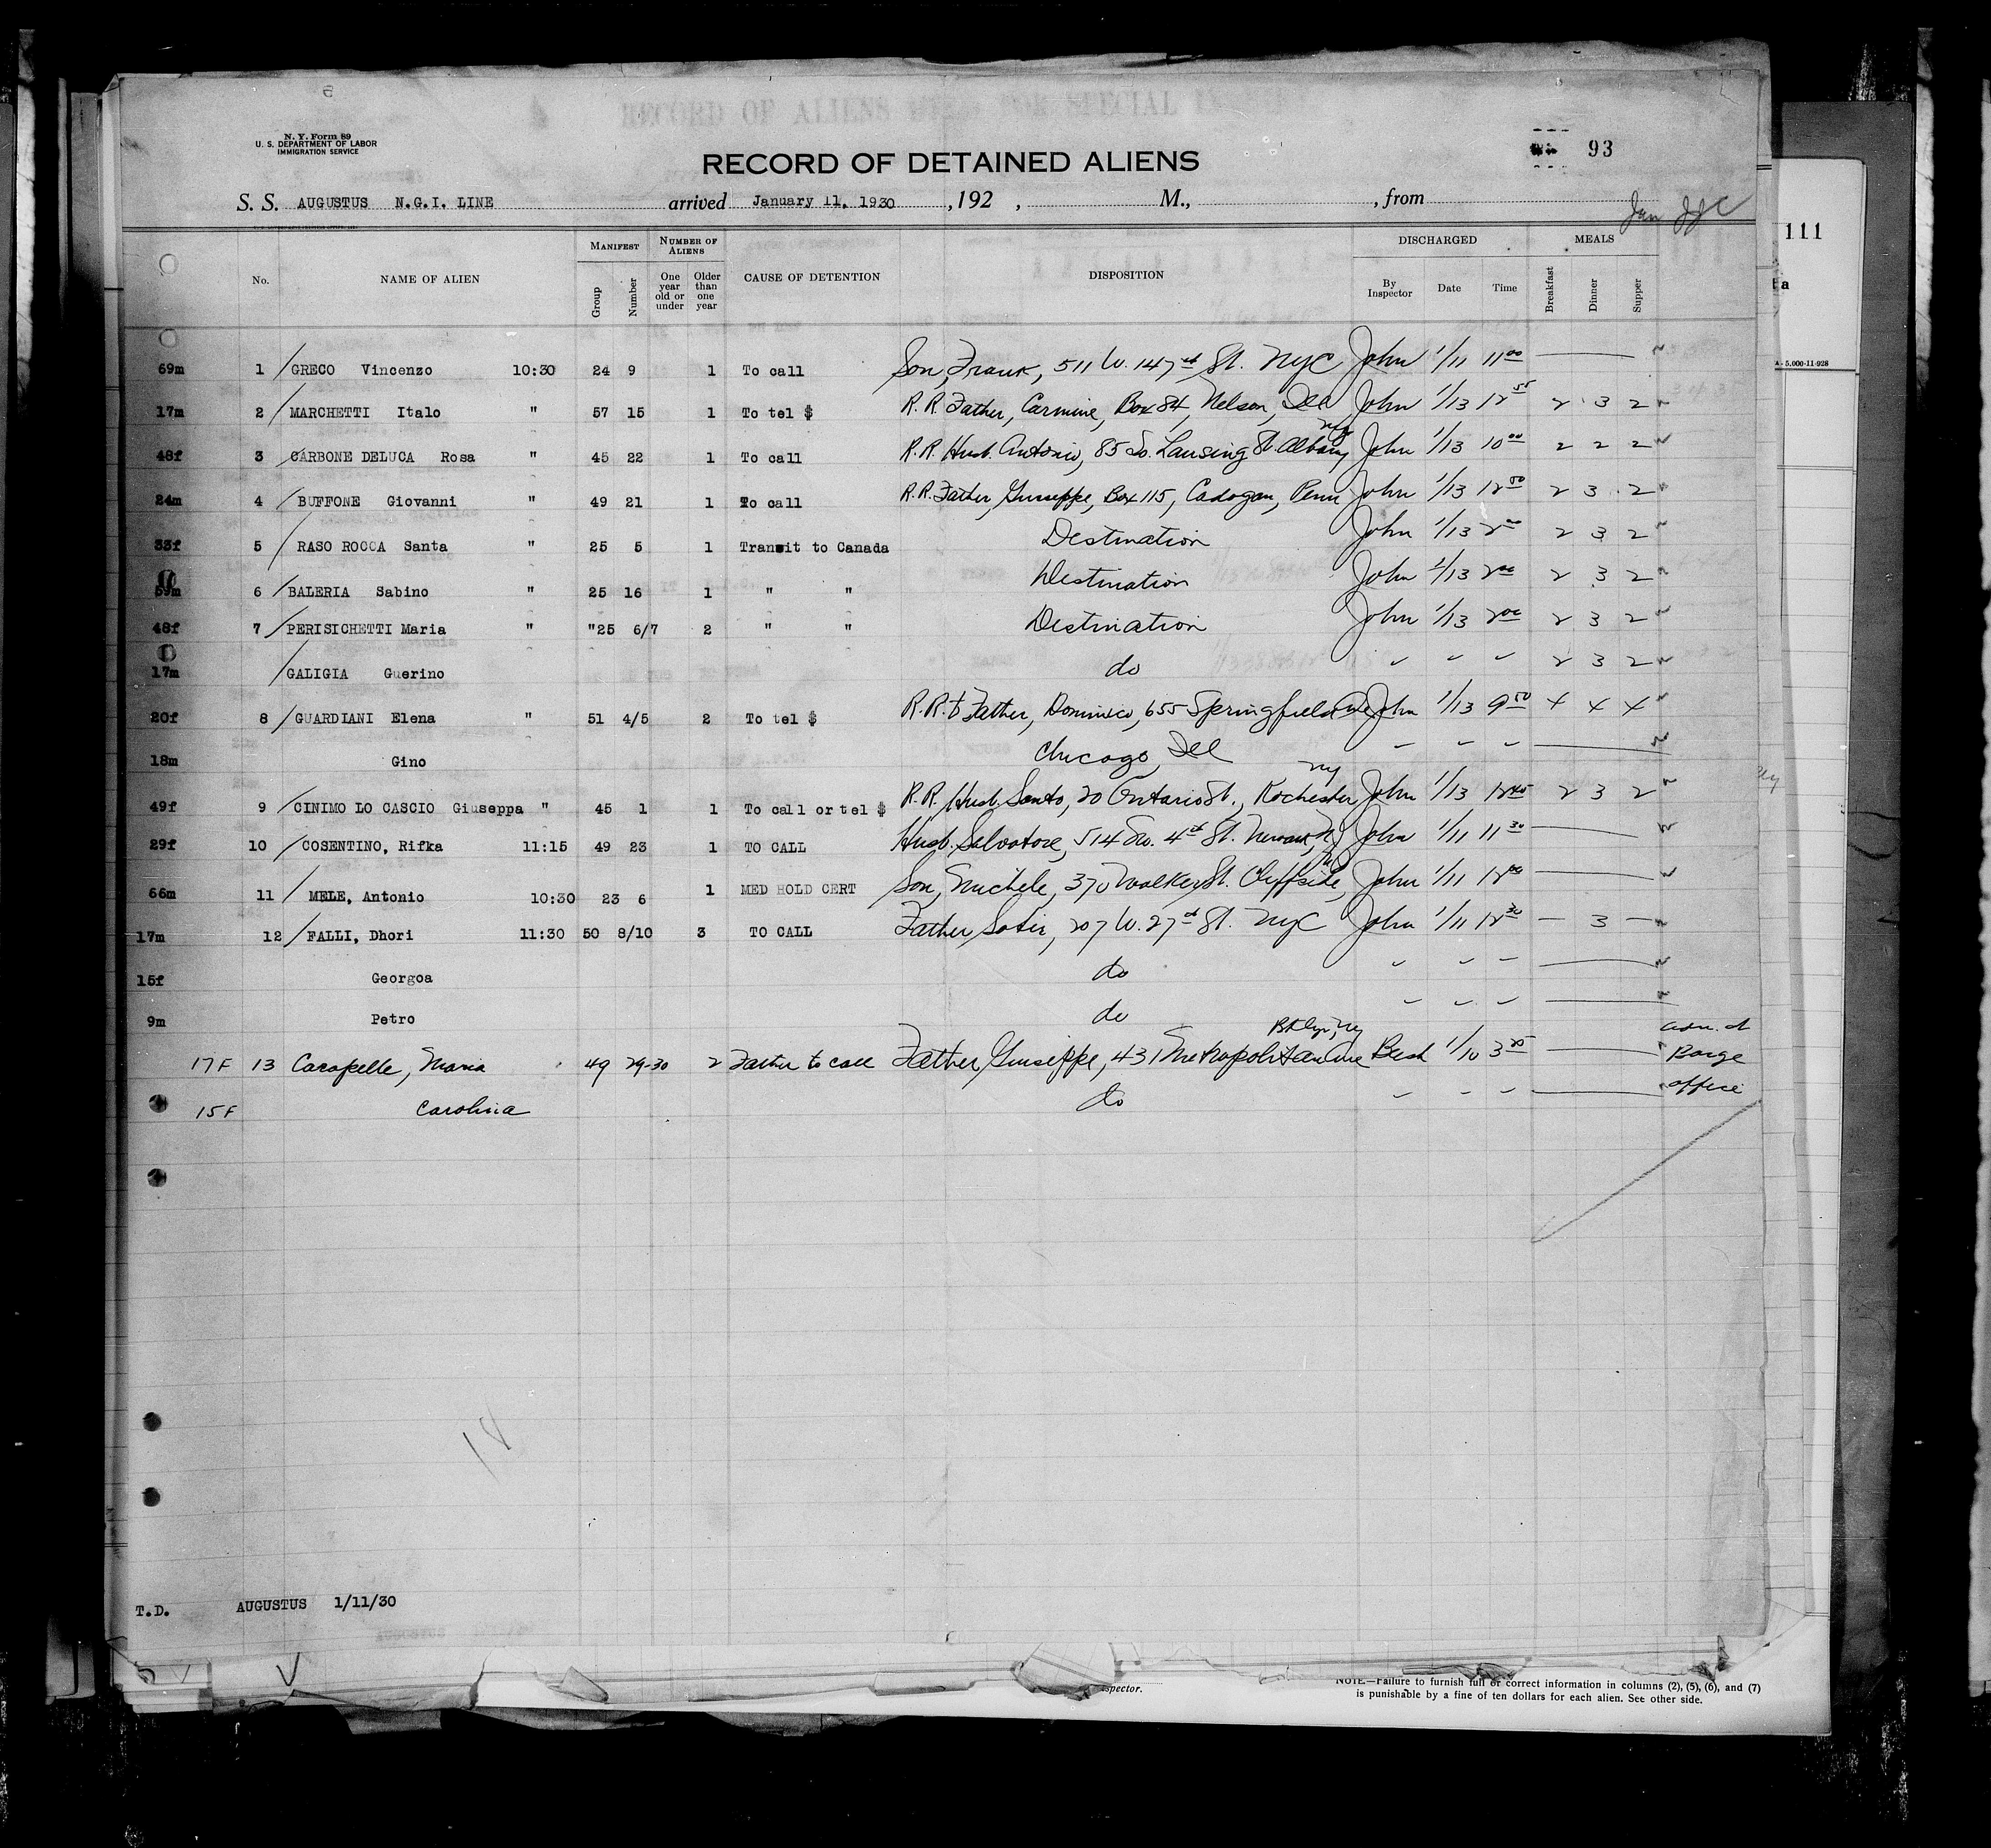 RECORD OF ALIENS HELD FOR SPECIAL
N. Y. Form 89
U. S. DEPARTMENT OF LABOR
IMMIGRATION SERVICE
93
RECORD OF DETAINED ALIENS
S. S. AUGUSTUS N.G.I. LINE arrived January 11, 1930 , 192 , M., , from
111
MANIFEST NUMBER OF ALIENS DISCHARGED MEALS
No. NAME OF ALIEN Group Number One year old or under Older than one year CAUSE OF DETENTION DISPOSITION By Inspector Date Time Breakfast Dinner Supper
A - 5,000-11-928
69m 1 / GRECO Vincenzo 10:30 24 9 1 To call Son, Frank, 511 W. 147 St. NYC John 1/11 11 00
17m 2 / MARCHETTI Italo " 57 15 1 To tel $ R.R. Father, Carmine, Box 84, Nelson, Ill John 1/13 12 55 2 3 2
48f 3 / CARBONE DELUCA Rosa " 45 22 1 To call R.R. Husb. Antonio, 85 So. Lansing St. Albany NY John 1/13 10 00 2 2 2
24m 4 / BUFFONE Giovanni " 49 21 1 To call R.R. Father, Giuseppe, Box 115, Cadogan, Penn John 1/13 12 50 2 3 2
33f 5 / RASO ROCCA Santa " 25 5 1 Transit to Canada Destination John 1/13 2 00 2 3 2
59m 6 / BALERIA Sabino " 25 16 1 " " Destination John 1/13 2 00 2 3 2
48f 7 / PERISICHETTI Maria " "25 6/7 2 " " Destination John 1/13 2 00 2 3 2
17m / GALIGIA Guerino do 2 3 2
20f 8 / GUARDIANI Elena " 51 4/5 2 To tel $ R.R. Father, Dominico, 655 Springfield Ave John 1/13 9 50 4 4 4
18m Gino Chicago, Ill
49f 9 / CINIMO LO CASCIO Giuseppa " 45 1 1 To call or tel $ R.R. Husb. Santo, 20 Ontario St., Rochester NY John 1/13 12 45 2 3 2
29f 10 / COSENTINO, Rifka 11:15 49 23 1 TO CALL Husb. Salvatore, 514 So. 4 St. Newark, NJ John 1/11 11 30
66m 11 / MELE, Antonio 10:30 23 6 1 MED HOLD CERT Son, Michele, 370 Walker St. Cliffside, NJ John 1/11 12 00
17m 12 / FALLI, Dhori 11:30 50 8/10 3 TO CALL Father Sotir, 207 W. 27 St. NYC John 1/11 12 30 3
15f Georgoa do
9m Petro do
17F 13 Carapelle, Maria 49 29-30 2 Father to call Father Giuseppe, 431 Metropolitan Ave Bklyn, NY Besh 1/10 3 25 adm. at Barge
15F Carolina do office
T.D. AUGUSTUS 1/11/30
spector.
NOTE.—Failure to furnish full or correct information in columns (2), (5), (6), and (7)
is punishable by a fine of ten dollars for each alien. See other side.